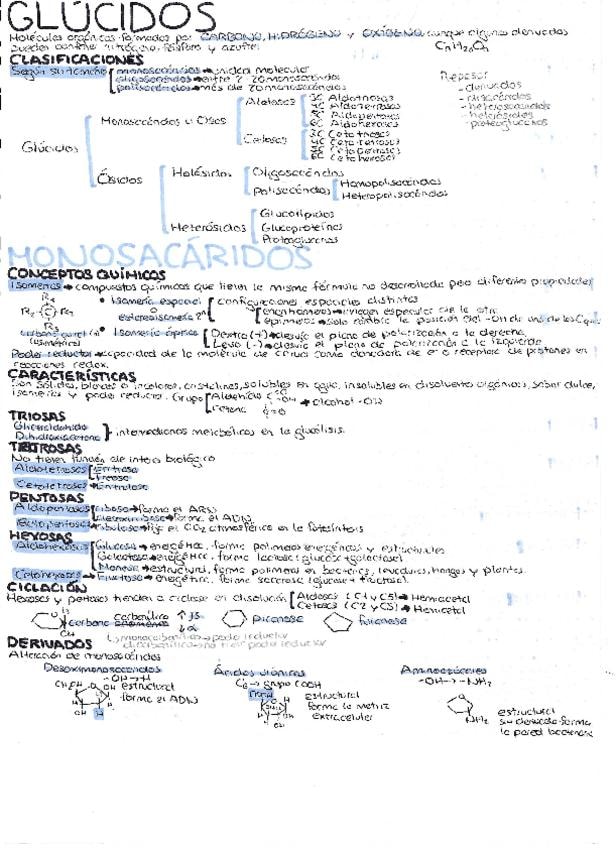 GLÚCIDOS
Moléculas orgánicas formadas por CARBONO, HIDRÓGENO y OXÍGENO, aunque algunos derivados
pueden contener nitrógeno, fósforo y azufre.
CLASIFICACIONES
Según su tamaño monosacáridos → unidad molecular
oligosacáridos → entre 2 y 20 monosacáridos
polisacáridos → más de 20 monosacáridos
Repasar
- derivados
- disacáridos
- heterósidos
- proteoglucanos
Glúcidos
Monosacáridos u Osas
Aldosas
3C Aldotriosas
4C Aldotetrosas
5C Aldopentosas
6C Aldohexosas
Cetosas
3C Cetotriosas
4C Cetotetrosas
5C Cetopentosas
6C Cetohexosas
Ósidos
Holósidos
Oligosacáridos
Polisacáridos
Homopolisacáridos
Heteropolisacáridos
Heterósidos
Glucolípidos
Glucoproteínas
MONOSACÁRIDOS
CONCEPTOS QUÍMICOS
Isomerías → compuestos químicos que tienen la misma fórmula no desarrollada pero diferentes propiedades
• Isomería espacial configuraciones espaciales distintas
o estereoisomería enantiómeros → imagen especular con la otra
epímeros → solo cambia la posición del -OH de uno de los
• Isomería óptica Dextro (+) → desvía el plano de polarización a la derecha
Levo (-) → desvía el plano de polarización a la izquierda
Poder reductor → capacidad de la molécula de actuar como donadora de e⁻ o receptora de protones en
reacciones redox.
CARACTERÍSTICAS
Son sólidos, blancos o incoloros, cristalinos, solubles en agua, insolubles en disolventes orgánicos, sabor dulce,
isomería y poder reductor. Grupo Aldehído → alcohol -OH
Cetona
TRIOSAS
Gliceraldehído
Dihidroxiacetona
intermediarios metabólicos en la glucólisis.
TETROSAS
No tienen función de interés biológico
Aldotetrosas Eritrosa
Treosa
Cetotetrosas → Eritrulosa
PENTOSAS
Aldopentosas ribosa → forma el ARN
desoxirribosa → forma el ADN
Cetopentosas → ribulosa → fija el CO₂ atmosférico en la fotosíntesis
HEXOSAS
Aldohexosas Glucosa → energética, forma polímeros energéticos y estructurales
Galactosa → energética, forma lactosa (glucosa + galactosa)
Manosa → estructural, forma polímeros en bacterias, levaduras, hongos y plantas.
Cetohexosas → Fructosa → energética, forma sacarosa (glucosa + fructosa).
CICLACIÓN
Hexosas y pentosas tienden a ciclarse en disolución Aldosas (C1 y C5) → Hemiacetal
Cetosas (C2 y C5) → Hemicetal
OH
carbono anomérico
piranosa
furanosa
monocarbonílico → poder reductor
dicarbonílico → no tiene poder reductor
DERIVADOS
Alteración de monosacáridos
Desoximonosacáridos
-OH → H
CH₂OH
estructural
forma el ADN
Ácidos urónicos
C₆ → grupo COOH
COOH
estructural
forma la matriz
extracelular
Aminoazúcares
-OH → -NH₂
NH₂
estructural
su derivado forma
la pared bacteriana